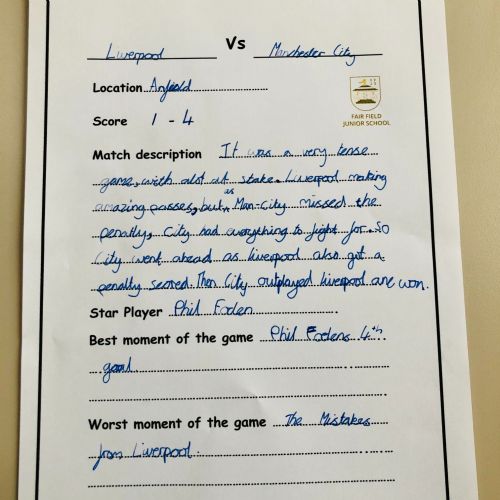 Liverpool Vs Manchester City
Location Anfield
FAIR FIELD
JUNIOR SCHOOL
Score 1 - 4
Match description It was a very tense
game, with alot at stake. Liverpool making
amazing passes, but as Man-City missed the
penalty, City had everything to fight for. So
City went ahead as liverpool also got a
penalty scored. Then City outplayed liverpool and won.
Star Player Phil Foden
Best moment of the game Phil Fodens 4th
goal
Worst moment of the game The Mistakes
from Liverpool.